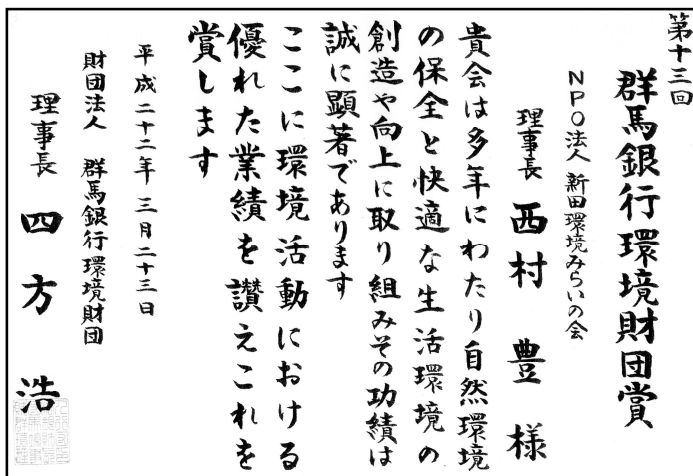 第十三回
群馬銀行環境財団賞
NPO法人 新田環境みらいの会
理事長 西村 豊 様
貴会は多年にわたり自然環境
の保全と快適な生活環境の
創造や向上に取り組みその功績は
誠に顕著であります
ここに環境活動における
優れた業績を讃えこれを
賞します
平成二十二年三月二十三日
財団法人 群馬銀行環境財団
理事長 四方 浩